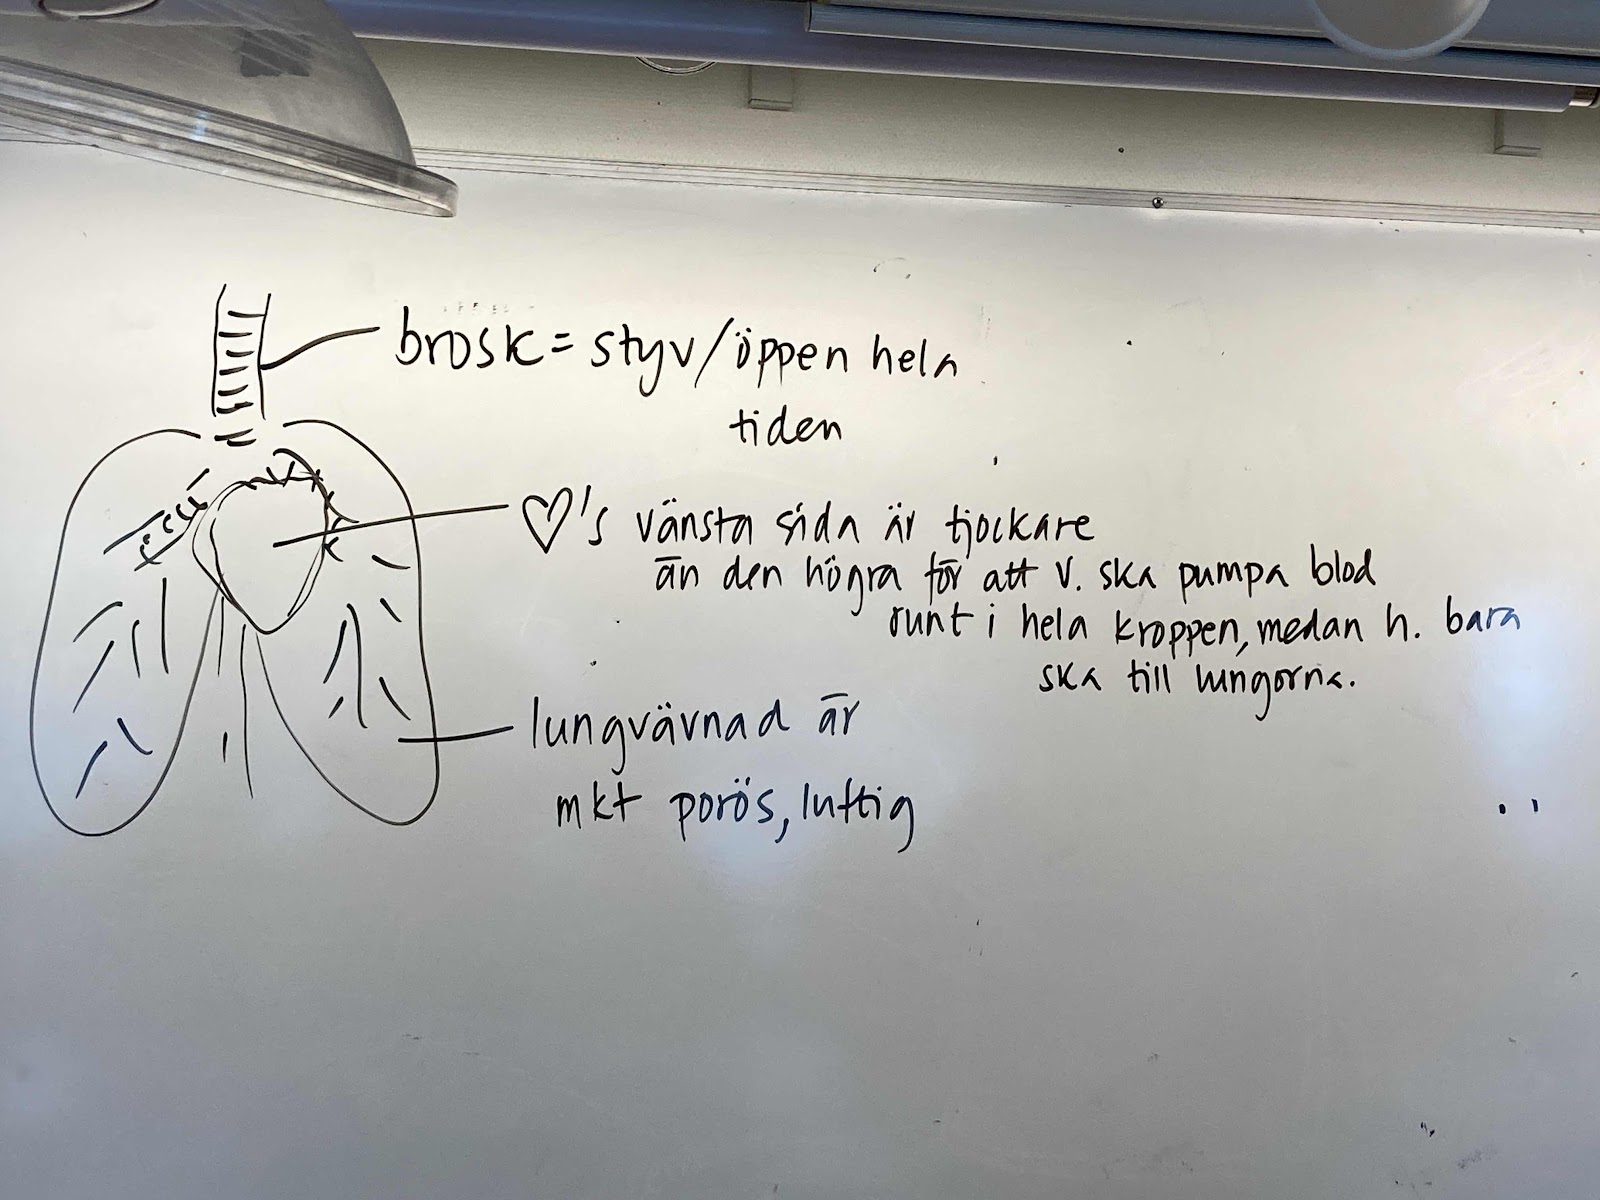 brosk = styv/öppen hela
tiden
♡'s vänsta sida är tjockare
än den högra för att v. ska pumpa blod
runt i hela kroppen, medan h. bara
ska till lungorna.
lungvävnad är
mkt porös, luftig